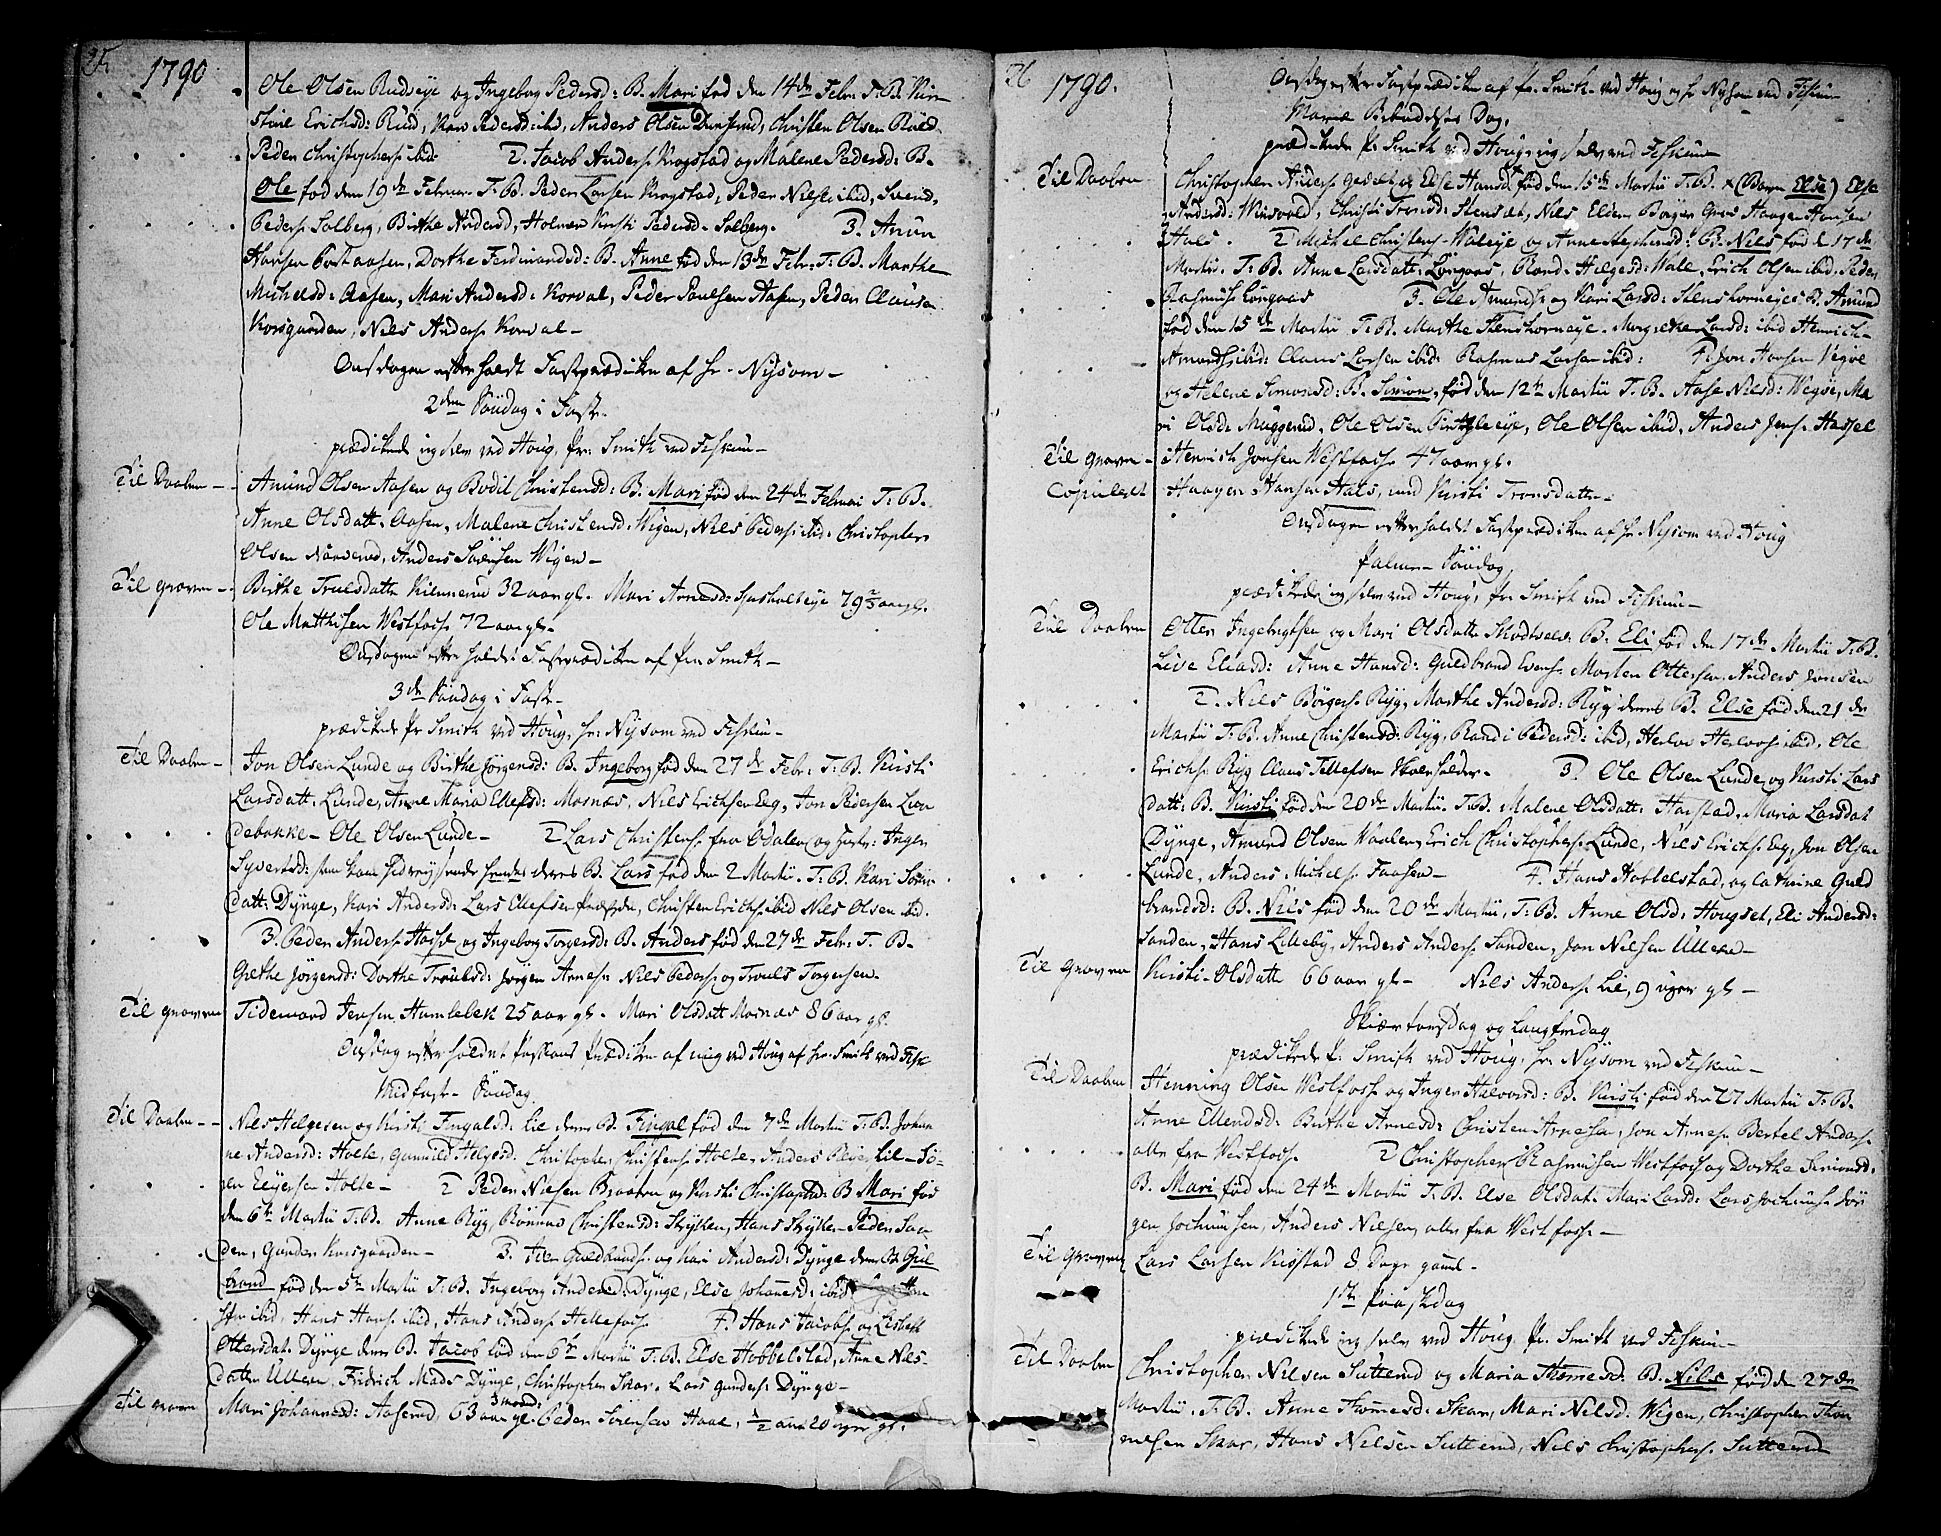 25
1790
Ole Olsen Rudseye og Ingebor Pedersd: B. Mari fød den 14de Febr. T. B. Kir
stine Erichsd: Rud, Kari Pedersd: ibid, Anders Olsen Dunserud, Christen Olsen Rud
Peder Christophers: ibid. 2. Jacob Anders: Krogstad og Malene Pedersd: B.
Ole fød den 19de Februar. T. B. Peder Larsen Krogstad, Peder Niels: ibid, Svend
Peders: Solberg, Birthe Andersd, Holmen Kirsti Pedersd. Solberg. 3. Amun
Hansen Aasen, Dorthe Ferdinandsd: B. Anne fød den 13de Febr. T. B. Marthe
Michelsd: Aasen, Mari Andersd: Korval, Peder Poulsen Aasen, Peder Clausen
Korsgaarden, Niels Anders: Korval -
Onsdagen efter holdt Fasteprædiken af hr. Nysom -
2den Søndag i Faste.
prædikede ieg selv ved Houg, hr: Smith ved Fiskum -
Til Daaben - Amund Olsen Aasen og Bodil Christensd: B. Mari fød den 24de Februari T. B.
Anne Olsdatt. Aasen, Malene Christensd: Wegen, Niels Peders: ibid: Christopher
Olsen Narverud, Anders Sørensen Wigen -
Til Graven - Birthe Truelsdatt Kinnerud 32 aar gl. Mari Arnesd: 79 aar gl.
Ole Matthisen Westfoss 72 aar gl. -
Onsdagen efter holdt Fasteprædiken af hr. Smith -
3de Søndag i Faste -
prædikede hr Smith ved Houg, hr: Nysom ved Fiskum -
Til Daaben - Jon Olsen Lunde og Birthe Jørgensd: B. Ingeborg fød den 27de Febr: T. B. Kirsti
Larsdatt: Lunde, Anne Maria Ellefsd: Mosnæs, Niels Erichsen Eeg, Jon Pedersen Lun
debakke - Ole Olsen Lunde - 2 Lars Christens: fra Odalen og Hustr: Inger
Syversd: som kom hid reysende deres B. Lars fød den 2 Martii. T. B. Kari Sørens
datt: Dynge, Kari Andersd: Lars Ellefsen Præsteeye, Christen Erichs: ibid Niels Olsen ibid.
3. Peder Anders: og Ingeborg Torgersd: B. Anders fød den 27de Febr. T. B.
Grethe Jørgensd: Dorthe Truelsd: Jørgen Arnes: Niels Peders: og Truels Torgersen.
Til Graven Tidemand Jensen Humlebek 25 aar gl. Mari Olsdatt Mosnæs 86 aar gl.
Onsdag efter holdt Fastens Prædiken af mig ved Houg af hr: Smith ved Fisk:
Midfaste Søndag.
Til Daaben - - Niels Helgesen og Kirsti Fingalsd: Lie deres B. Fingal fød den 7de Martii T. B. Johan
ne Andersd: Holte, Gunnild Helgesd. Christopher Christens: Holte, Anders Lie - Sø-
ren Eyersen Holte - 2 Peder Nielsen Braaten og Kirsti Christophersd: B Mari fød
den 6te Martii T. B. Anne Ryg, Rønnau Christensd: Skyken, Hans Skyke - Peder San
den, Gunder Korsgaarden - 3. Iver Guldbrands: og Kari Andersd: Dynge deres B. Gul
brand fød den 5te Martii T. B. Ingeborg Andersd: Dynge, Else Johansd: ibid
ibid, Hans Hans: ibid, Hans Anders: Hellefoss. 4. Hans Jacobs: og Lisbeth
Ottersdat. Dynge deres B. Jacob fød den 6te Martii T. B. Else Hobbelstad, Anne Niels-
datter Ullern, Fridrich Mads: Dynge, Christopher Skar, Lars Gunders: Dynge -
Til Graven Mari Johannesd: Aaserud, 63 aar gl. 3 maand: Peder Sørensen Haae, 1/2 aar 20 uger gl.
26
1790.
Onsdag efter Fasteprædiken af hr. Smith - ved Houg og hr Nysom ved Fiskum -
Mariæ Bebudelses Dag.
prædikede hr Smith ved Houg, ieg selv ved Fiskum -
Til Daaben Christopher Anders: og Else Hansd: fød den 15de Martii T. B. x (Barn Else) Else
Andersd: Christi Tronsd: Stenset, Niels Elden Børger Haagen Hansen
Hals. 2 Michel Christens: Waleye og Anne Stephensd: B. Niels fød d 17de
Martii. T. B. Anne Larsdatt: Longaas, Rand: Helgesd: Wale, Erich Olsen ibid, Peder
Rasmus: Longaas 3. Ole Amunds: og Kari Larsd: Stenshorneye B. Amund
fød den 15de Martii T. B. Marthe Stenshorneye. Margrethe Larsd: ibid Henrich
Amunds: ibid: Claus Larsen ibid: Rasmus Larsen ibid: 4. Jon Hansen Vegøe
og Helene Simonsd: B. Simon, fød den 12te Martii T. B. Aase Nielsd: Wegøe, Ma
ri Olsd: Muggerud, Ole Olsen, Ole Olsen ibid, Anders Jens: Hassel
Til Graven - Henrich Jonsen Westfoss 47 aar gl.
Copuleret Haagen Hansen Hals, med Kirsti Tronsdatter -
Onsdagen efter holdt Fasteprædiken af hr. Nysom ved Houg
Palme - Søndag
prædikede ieg selv ved Houg, hr. Smith ved Fiskum -
Til Daaben Otter Ingebrigtsen og Mari Olsdatt Skodtvedt: B. Eli fød den 17de Martii T. B.
Live Eliasd: Anne Hansd: Guldbrand Evens: Morten Ottersen, Anders Jonsen
2. Niels Børgers: Ryg, Marthe Andersd: Ryg deres B. Else fød den 21de
Martii T. B. Anne Christensd: Ryg, Randi Pedersd: ibid, Herlov Herlovs: ibid, Ole
Erichs: Ryg Claus Tollefsen Skoeholder - 3. Ole Olsen Lunde og Kirsti Lars
datt: B. Kirsti fød den 20de Martii. T. B. Malene Olsdatt: Harstad, Maria Larsdat
Dynge, Amund Olsen Waalen, Erich Christophers: Lunde, Niels Erichs: Eeg, Jon Olsen
Lunde, Anders Michels: Faasen - 4. Hans Hobbelstad, og Cathrine Guld
brandsd: B. Niels fød den 20de Martii, T. B. Anne Olsd: Hougset, Eli Andersd:
Sanden, Hans Lilleby, Anders Anders: Sanden, Jon Nielsen Ullern -
Til Graven Kirsti Olsdatt 66 aar gl - Niels Anders: Lie, 9 uger gl -
Skiærtorsdag og Langfredag
prædikede hr. Smith ved Houg, hr: Nysom ved Fiskum -
Til Daaben Henning Olsen Westfoss og Inger Halvorsd: B. Kirsti fød den 27 Martii T. B.
Anne Ellendsd: Birthe Arnesd: Christen Arnesen, Jon Arnes: Bertel Anders:
alle fra Vestfoss. 2 Christopher Rasmusen Westfoss og Dorthe Simonsd:
B. Mari fød den 24de Martii T. B. Else Olsdat. Mari Larsd: Lars Jochums: Jør
gen Jochumsen, Anders Nielsen, alle fra Westfoss -
Til Graven Lars Larsen Kiøstad 8 Dage gaml -
1ste Paaskedag
prædikede ieg selv ved Houg hr. Smith ved Fiskum -
Til Daaben Christopher Nielsen Sutterud og Maria Thomesd: B. Niels fød d 27de
Martii, T. B. Anne Thomesd: Skar, Mari Nielsd: Wegen, Christopher Thom
mesen Skar, Hans Nielsen Sutterud, Niels Christophers: Sutterud